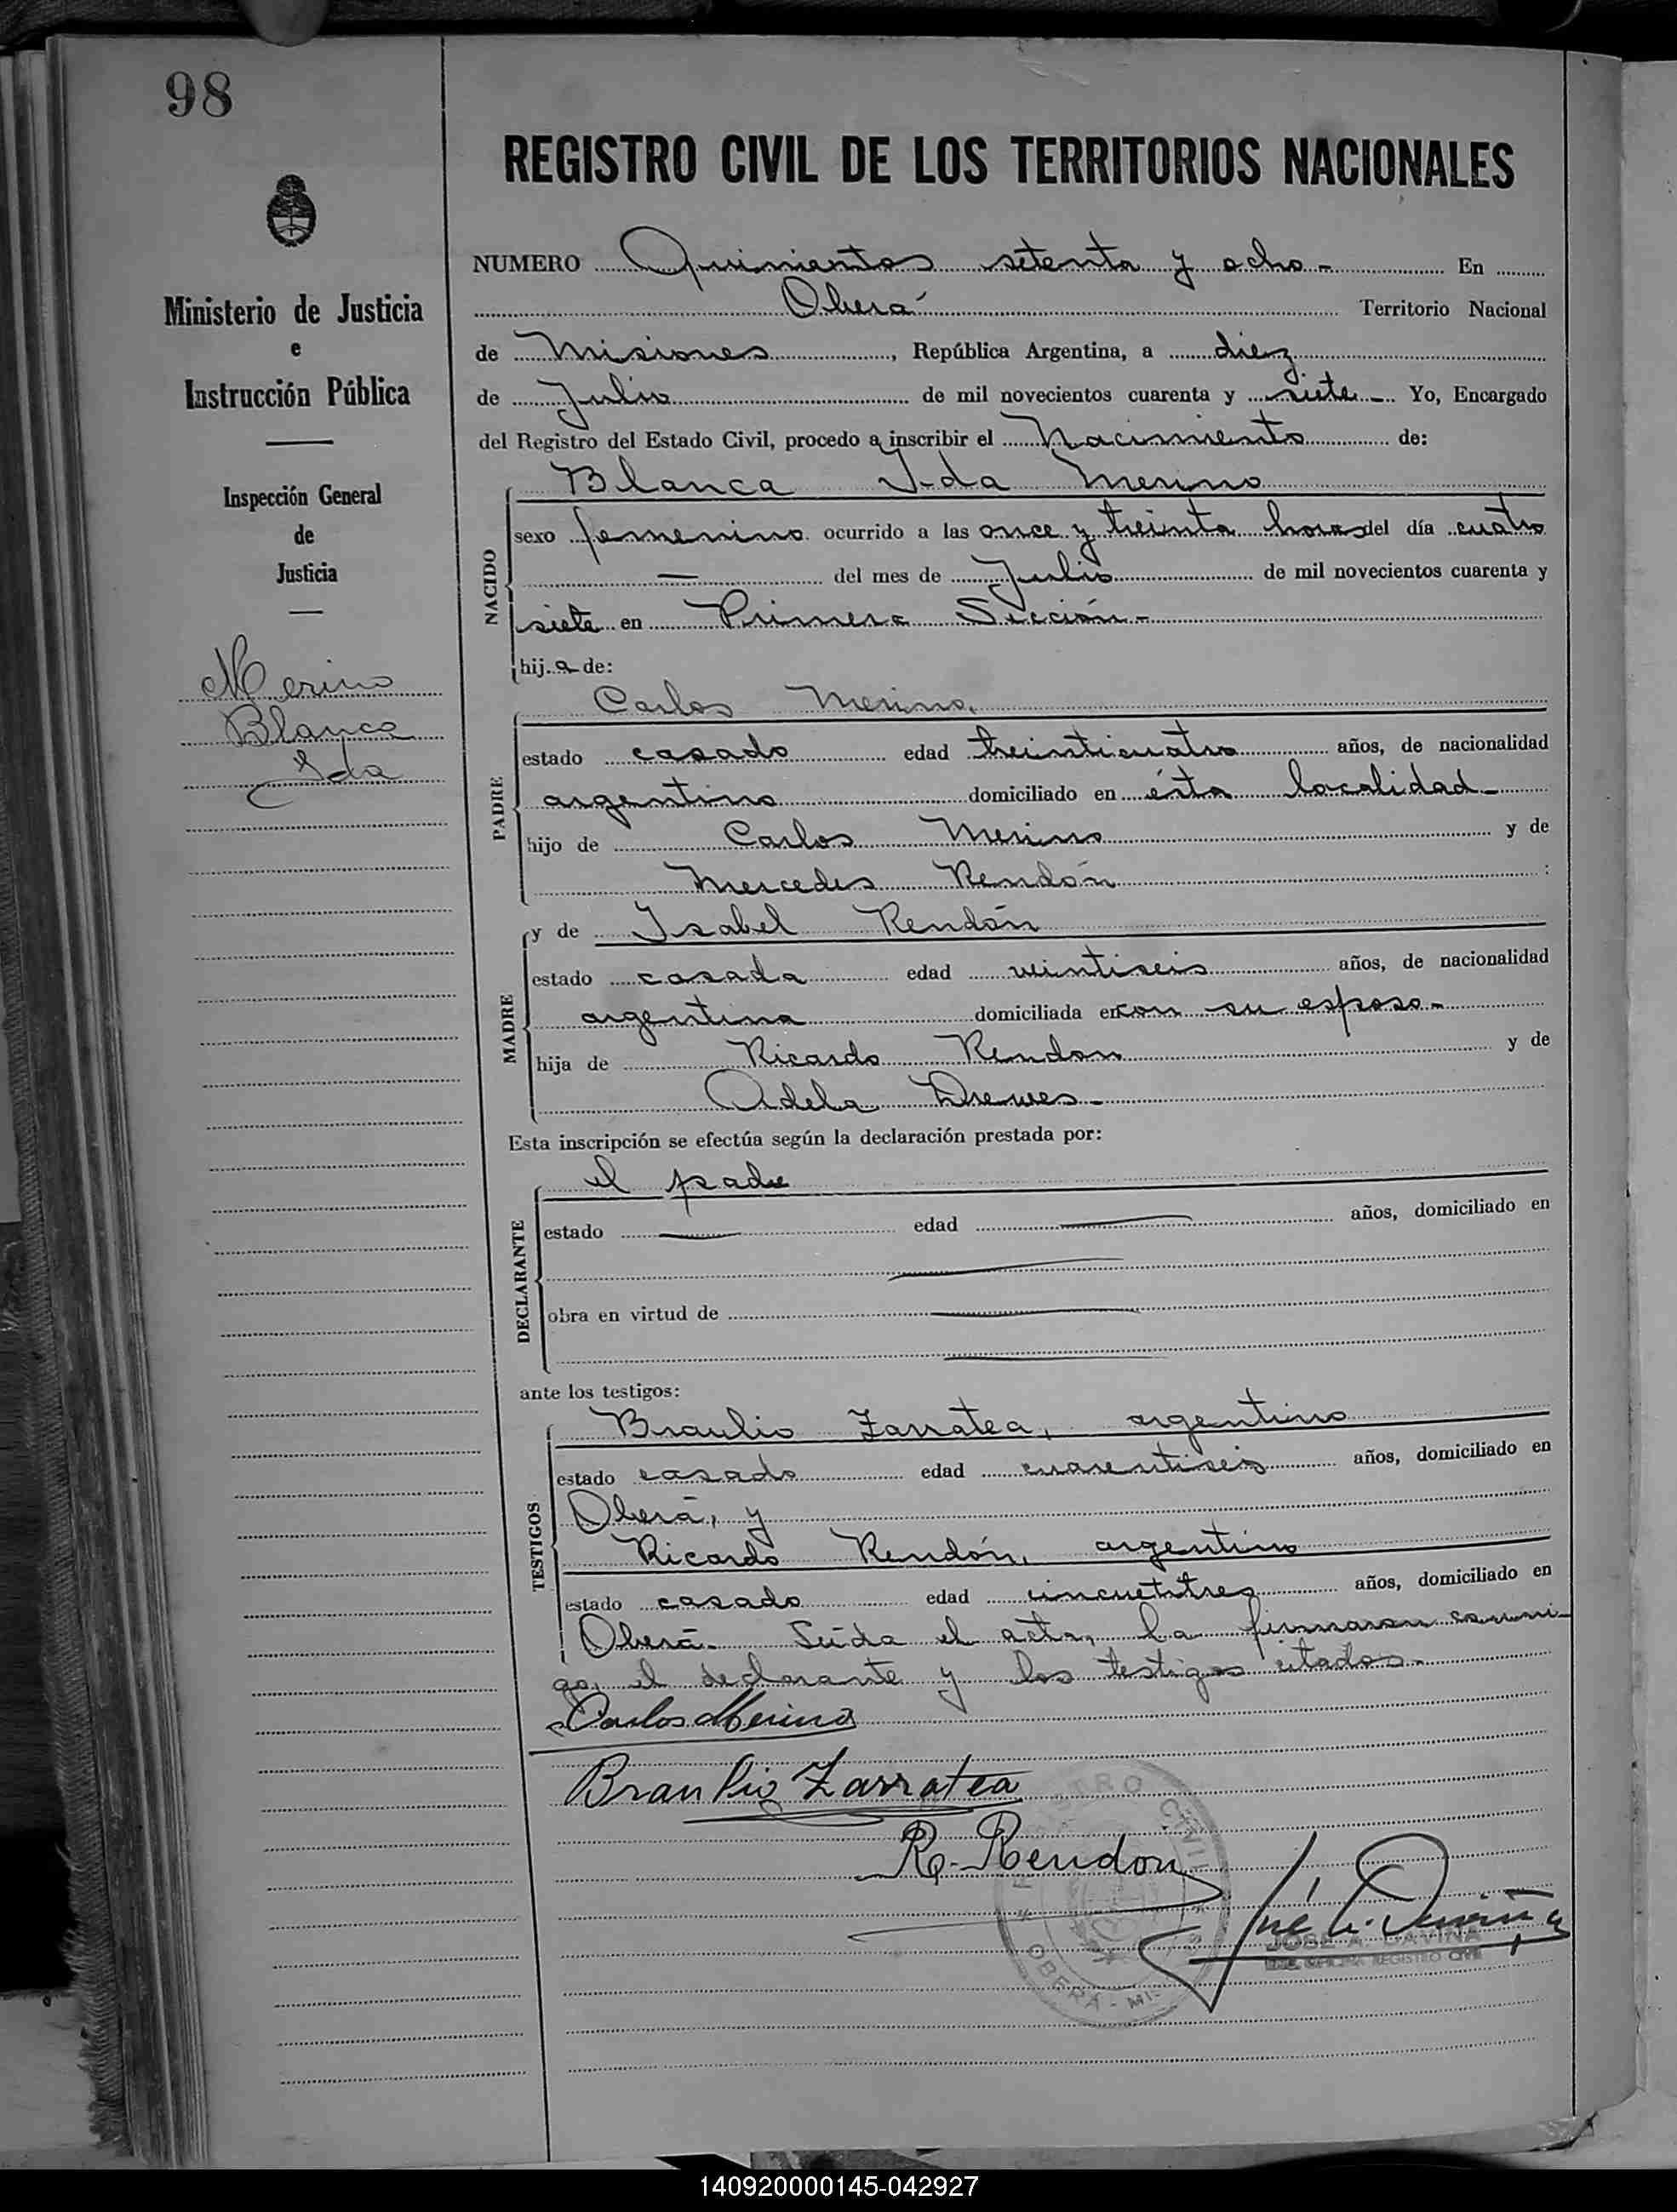 98
REGISTRO CIVIL DE LOS TERRITORIOS NACIONALES
Ministerio de Justicia
e
Instrucción Pública
Inspección General
de
Justicia
Merino
Blanca
Ida
NUMERO Quinientos setenta y ocho - En
Oberá Territorio Nacional
de Misiones, República Argentina, a diez
de Julio de mil novecientos cuarenta y siete - Yo, Encargado
del Registro del Estado Civil, procedo a inscribir el Nacimiento de:
NACIDO
Blanca Ida Merino
sexo femenino ocurrido a las once y treinta horas del día cuatro
— del mes de Julio de mil novecientos cuarenta y
siete en Primera Sección -
hija de:
PADRE
Carlos Merino,
estado casado edad treinticuatro años, de nacionalidad
argentino domiciliado en ésta localidad -
hijo de Carlos Merino y de
Mercedes Rendón :
MADRE
y de Isabel Rendón
estado casada edad veintiseis años, de nacionalidad
argentina domiciliada en con su esposo -
hija de Ricardo Rendon y de
Adela Drewes -
Esta inscripción se efectúa según la declaración prestada por:
DECLARANTE
el padre
estado — edad — años, domiciliado en
—
obra en virtud de —
—
ante los testigos:
TESTIGOS
Braulio Zarratea, argentino
estado casado edad cuarentiseis años, domiciliado en
Oberá, y
Ricardo Rendón, argentino
estado casado edad cincuetitres años, domiciliado en
Oberá. Leída el acta, la firmaron conmi-
go, el declarante y los testigos citados -
Carlos Merino
Braulio Zarratea
R. Rendon
REGISTRO CIVIL
OBERÁ - MI
JOSE A. DAVIÑA
ENC. OFICINA REGISTRO CIVIL
140920000145-042927